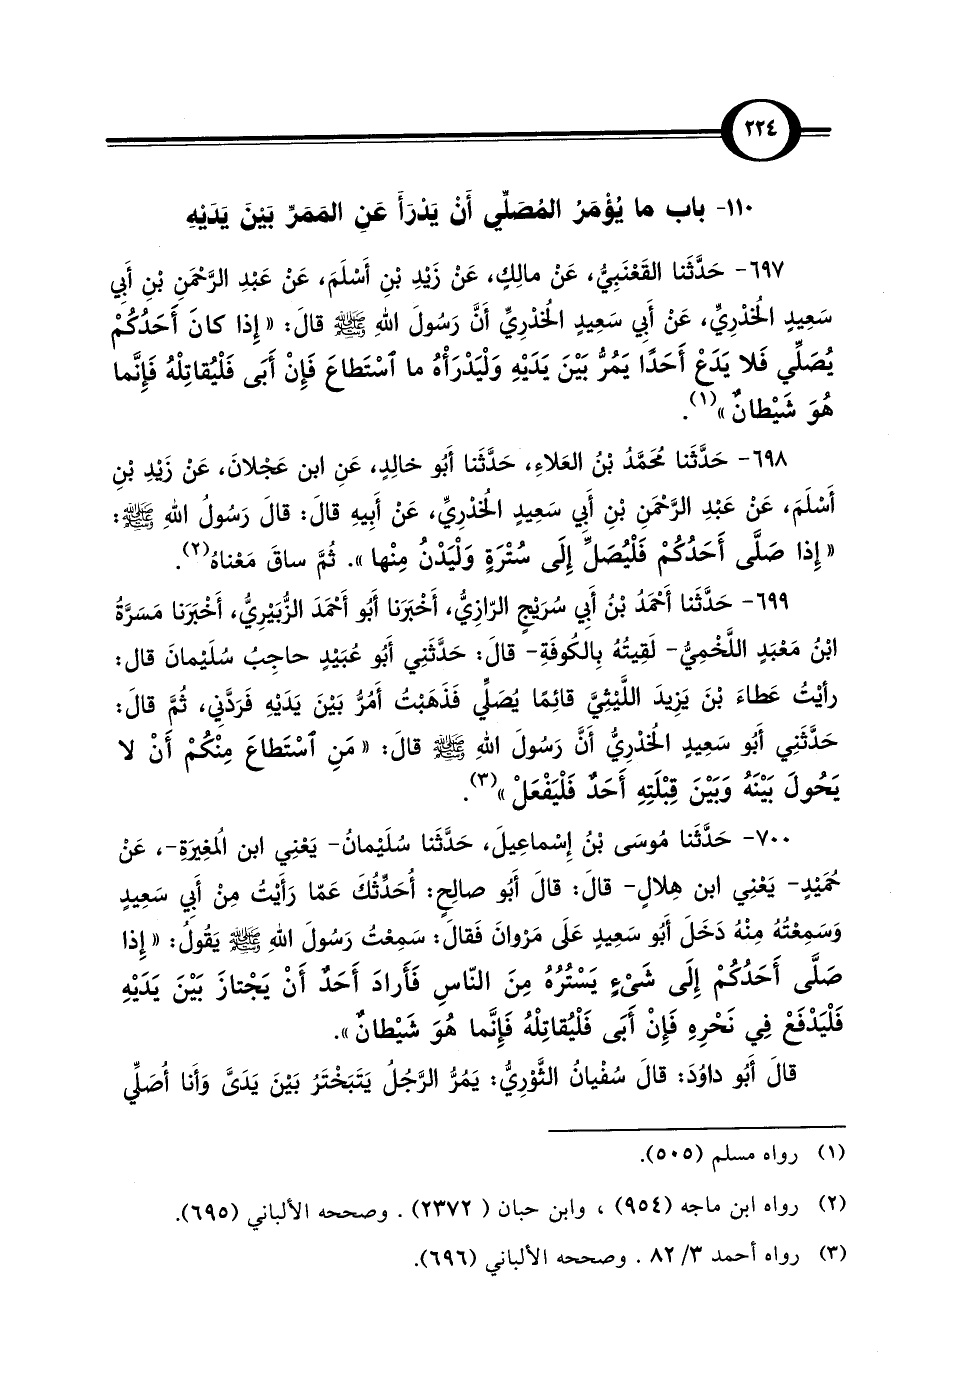 ٢٢٤
١١٠- باب ما يُؤْمَرُ المُصَلِّي أَنْ يَدْرَأَ عَنِ المَمَرِّ بَيْنَ يَدَيْهِ
٦٩٧- حَدَّثَنا القَعْنَبِيُّ، عَنْ مالِكٍ، عَنْ زَيْدِ بْنِ أَسْلَمَ، عَنْ عَبْدِ الرَّحْمَنِ بْنِ أَبِي
سَعِيدٍ الخُدْرِيِّ، عَنْ أَبِي سَعِيدٍ الخُدْرِيِّ أَنَّ رَسُولَ اللهِ ﷺ قالَ: « إِذا كانَ أَحَدُكُمْ
يُصَلِّي فَلا يَدَعْ أَحَدًا يَمُرُّ بَيْنَ يَدَيْهِ وَلْيَدْرَأْهُ ما اسْتَطاعَ فَإِنْ أَبَى فَلْيُقاتِلْهُ فَإِنَّما
هُوَ شَيْطانٌ »(١).
٦٩٨- حَدَّثَنا مُحَمَّدُ بْنُ العَلاءِ، حَدَّثَنا أَبُو خالِدٍ، عَنِ ابن عَجْلانَ، عَنْ زَيْدِ بْنِ
أَسْلَمَ، عَنْ عَبْدِ الرَّحْمَنِ بْنِ أَبِي سَعِيدٍ الخُدْرِيِّ، عَنْ أَبِيهِ قالَ: قالَ رَسُولُ اللهِ ﷺ:
« إِذا صَلَّى أَحَدُكُمْ فَلْيُصَلِّ إِلَى سُتْرَةٍ وَلْيَدْنُ مِنْها ». ثُمَّ ساقَ مَعْناهُ(٢).
٦٩٩- حَدَّثَنا أَحْمَدُ بْنُ أَبِي سُرَيْجٍ الرّازِيُّ، أَخْبَرَنا أَبُو أَحْمَدَ الزُّبَيْرِيُّ، أَخْبَرَنا مَسَرَّةُ
ابْنُ مَعْبَدٍ اللَّخْمِيُّ- لَقِيتُهُ بِالكُوفَةِ- قالَ: حَدَّثَنِي أَبُو عُبَيْدٍ حاجِبُ سُلَيْمانَ قال:
رأَيْتُ عَطاءَ بْنَ يَزِيدَ اللَّيْثِيَّ قائِمًا يُصَلِّي فَذَهَبْتُ أَمُرُّ بَيْنَ يَدَيْهِ فَرَدَّنِي، ثُمَّ قالَ:
حَدَّثَنِي أَبُو سَعِيدٍ الخُدْرِيُّ أَنَّ رَسُولَ اللهِ ﷺ قالَ: « مَنِ اسْتَطاعَ مِنْكُمْ أَنْ لا
يَحُولَ بَيْنَهُ وَبَيْنَ قِبْلَتِهِ أَحَدٌ فَلْيَفْعَلْ »(٣).
٧٠٠- حَدَّثَنا مُوسَى بْنُ إِسْماعِيلَ، حَدَّثَنا سُلَيْمانُ- يَعْنِي ابن المُغِيرَةِ-، عَنْ
حُمَيْدٍ- يَعْنِي ابن هِلالٍ- قالَ: قالَ أَبُو صالِحٍ: أُحَدِّثُكَ عَمّا رَأَيْتُ مِنْ أَبِي سَعِيدٍ
وَسَمِعْتُهُ مِنْهُ دَخَلَ أَبُو سَعِيدٍ عَلَى مَرْوانَ فَقالَ: سَمِعْتُ رَسُولَ اللهِ ﷺ يَقُولُ: « إِذا
صَلَّى أَحَدُكُمْ إِلَى شَىْءٍ يَسْتُرُهُ مِنَ النّاسِ فَأَرادَ أَحَدٌ أَنْ يَجْتازَ بَيْنَ يَدَيْهِ
فَلْيَدْفَعْ فِي نَحْرِهِ فَإِنْ أَبَى فَلْيُقاتِلْهُ فَإِنَّما هُوَ شَيْطانٌ ».
قالَ أَبُو داوُدَ: قالَ سُفْيانُ الثَّوْرِيُّ: يَمُرُّ الرَّجُلُ يَتَبَخْتَرُ بَيْنَ يَدَىَّ وَأَنا أُصَلِّي
(١) رواه مسلم (٥٠٥).
(٢) رواه ابن ماجه (٩٥٤) ، وابن حبان ( ٢٣٧٢) . وصححه الألباني (٦٩٥).
(٣) رواه أحمد ٣/ ٨٢ . وصححه الألباني (٦٩٦).